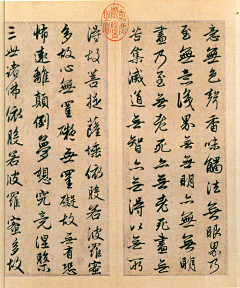 意無色聲香味觸法無眼界乃
至無意識界無無明亦無無明
盡乃至無老死亦無老死盡無
苦集滅道無智亦無得以無所
得故菩提薩埵依般若波羅蜜
多故心無罣礙無罣礙故無有恐
怖遠離顛倒夢想究竟涅槃
三世諸佛依般若波羅蜜多故